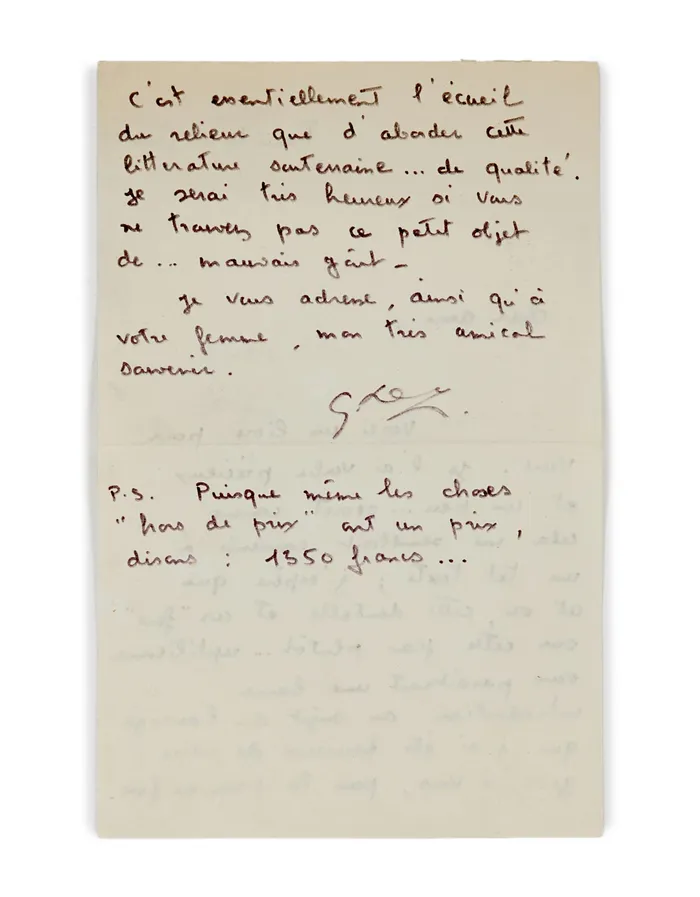 C'est essentiellement l'écueil
du relieur que d'aborder cette
littérature souterraine... de qualité.
Je serai très heureux si vous
ne trouvez pas ce petit objet
de... mauvais goût –
Je vous adresse, ainsi qu'à
votre femme, mon très amical
souvenir.
P.S. Puisque même les choses
"hors de prix" ont un prix,
disons : 1350 francs...